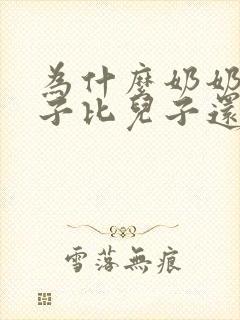 為什麼奶奶
子比兒子還
雪落無痕